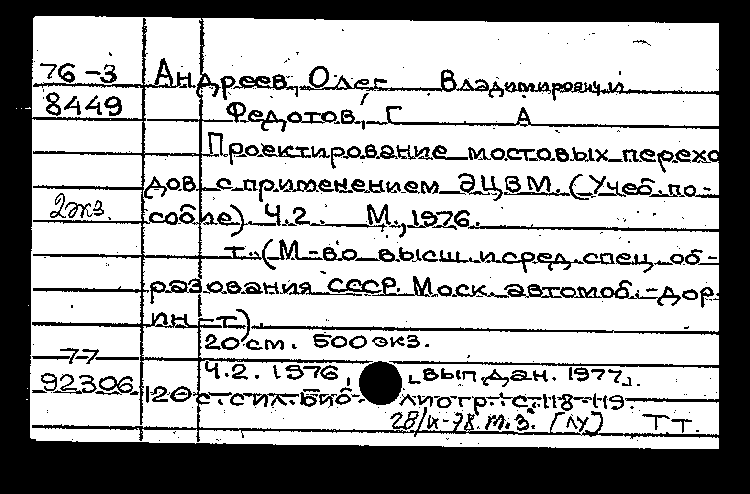 76-3 Андреев, Олег Владимирович и
8449 Федотов, Г А
Проектирование мостовых перехо
дов с применением ЭЦВМ. (Учеб. по-
2экз. собие). Ч.2. М., 1976.
т. (М-во высш. и сред. спец. об-
разования СССР. Моск. автомоб.-дор.
ин-т).
20 см. 500 экз.
77 Ч.2. 1976, [вып. дан. 1977].
92306 120 с. с ил. Библиогр.: с. 118-119.
28/IX-78. т.з. (ЛУ) Т.Т.